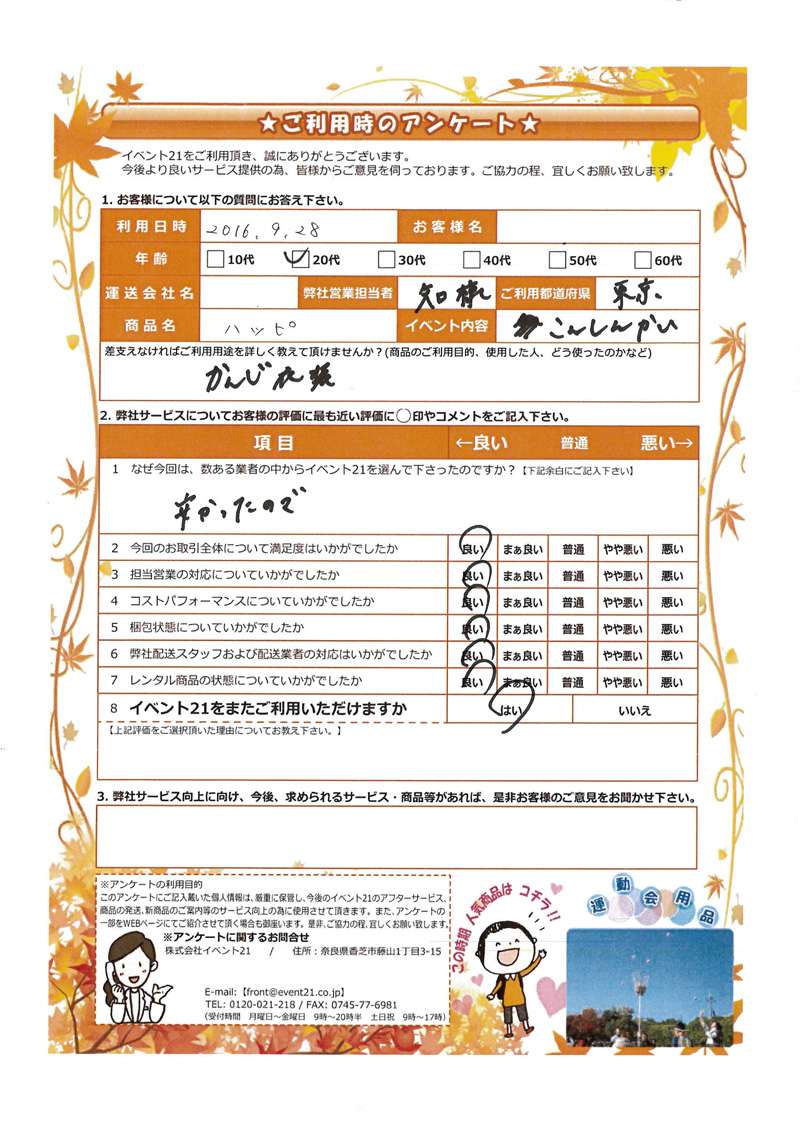 ★ご利用時のアンケート★
イベント21をご利用頂き、誠にありがとうございます。
今後より良いサービス提供の為、皆様からご意見を伺っております。ご協力の程、宜しくお願い致します。
1. お客様について以下の質問にお答え下さい。
利用日時 2016. 9. 28 お客様名
年齢 10代 20代 30代 40代 50代 60代
運送会社名 弊社営業担当者 様 ご利用都道府県 東京
商品名 ハッピ イベント内容 こんしんかい
差支えなければご利用用途を詳しく教えて頂けませんか？(商品のご利用目的、使用した人、どう使ったのかなど)
かんじ衣装
2. 弊社サービスについてお客様の評価に最も近い評価に〇印やコメントをご記入下さい。
項目 ←良い 普通 悪い→
1 なぜ今回は、数ある業者の中からイベント21を選んで下さったのですか？【下記余白にご記入下さい】
安かったので
2 今回のお取引全体について満足度はいかがでしたか 良い まぁ良い 普通 やや悪い 悪い
3 担当営業の対応についていかがでしたか 良い まぁ良い 普通 やや悪い 悪い
4 コストパフォーマンスについていかがでしたか 良い まぁ良い 普通 やや悪い 悪い
5 梱包状態についていかがでしたか 良い まぁ良い 普通 やや悪い 悪い
6 弊社配送スタッフおよび配送業者の対応はいかがでしたか 良い まぁ良い 普通 やや悪い 悪い
7 レンタル商品の状態についていかがでしたか 良い まぁ良い 普通 やや悪い 悪い
8 イベント21をまたご利用いただけますか はい いいえ
【上記評価をご選択頂いた理由についてお教え下さい。】
3. 弊社サービス向上に向け、今後、求められるサービス・商品等があれば、是非お客様のご意見をお聞かせ下さい。
※アンケートの利用目的
このアンケートにご記入戴いた個人情報は、厳重に保管し、今後のイベント21のアフターサービス、
商品の発送、新商品のご案内等のサービス向上の為に使用させて頂きます。また、アンケートの
一部をWEBページにてご紹介させて頂く場合も御座います。是非、ご協力の程、宜しくお願い致します。
※アンケートに関するお問合せ
株式会社イベント21 / 住所：奈良県香芝市藤山1丁目3-15
E-mail:【front@event21.co.jp】
TEL: 0120-021-218 / FAX: 0745-77-6981
（受付時間 月曜日～金曜日 9時～20時半 土日祝 9時～17時）
この時期 人気商品は コチラ!!
運動会用品